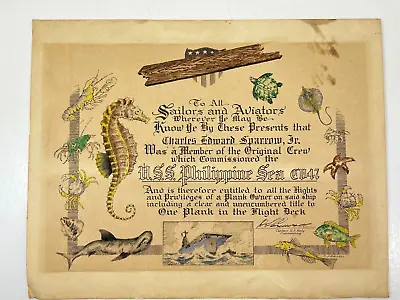 To All
Sailors and Aviators
Wherever Ye May Be
Know Ye By These Presents that
Charles Edward Sparrow, Jr.
Was a Member of the Original Crew
which Commissioned the
U.S.S. Philippine Sea CV47
And is therefore entitled to all the Rights
and Privileges of a Plank Owner on said ship
including a clear and unencumbered title to
One Plank in the Flight Deck